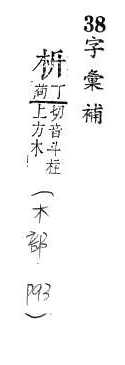 38字彙補
丁荷切音斗柱
上方木
(木部 P93)